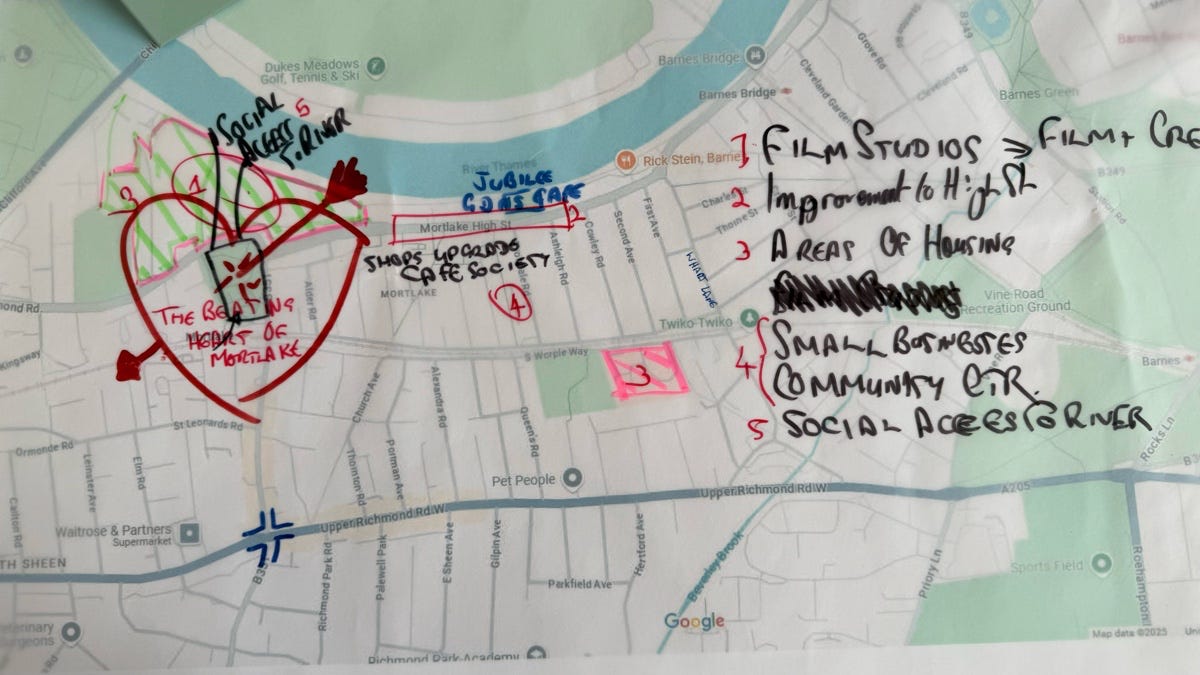 Dukes Meadows
Golf, Tennis & Ski
Barnes Bridge
Barnes Bridge
Cleveland Gardens
Grove Rd
Cleveland Rd
B349
Barnes Green
SOCIAL 5
ACCESS
T. RIVER
1
3
River Thames
JUBILEE
GDNS CAFE
Rick Stein, Barne
Mortlake High St
2
SHOPS UPGRADE
CAFE SOCIETY
MORTLAKE
4
Ashleigh Rd
Cowley Rd
Second Ave
First Ave
Charles St
Thorne St
WHARF LANE
1 FILM STUDIOS => FILM + CRE
2 Improvement to High St
3 AREAS OF HOUSING
4 SMALL BUSINESSES
COMMUNITY CTR.
5 SOCIAL ACCESS TO RIVER
B349
Vine Road
Recreation Ground
Twiko-Twiko
Barnes
THE BEATING
HEART OF
MORTLAKE
Alder Rd
ond Rd
Kingsway
S Worple Way
3
Church Ave
Alexandra Rd
Queen's Rd
St Leonards Rd
Ormonde Rd
Leinster Ave
Elm Rd
Thornton Rd
Portman Ave
Carlton Rd
Rocks Ln
Pet People
Upper Richmond Rd W
A205
Upper Richmond Rd W
Waitrose & Partners
Supermarket
TH SHEEN
B3
Richmond Park Rd
Palewell Park
E Sheen Ave
Gilpin Ave
Hertford Ave
Parkfield Ave
Beverley Brook
Priory Ln
Sports Field
Roehampton
Google
Map data ©2025
Richmond Park Academy